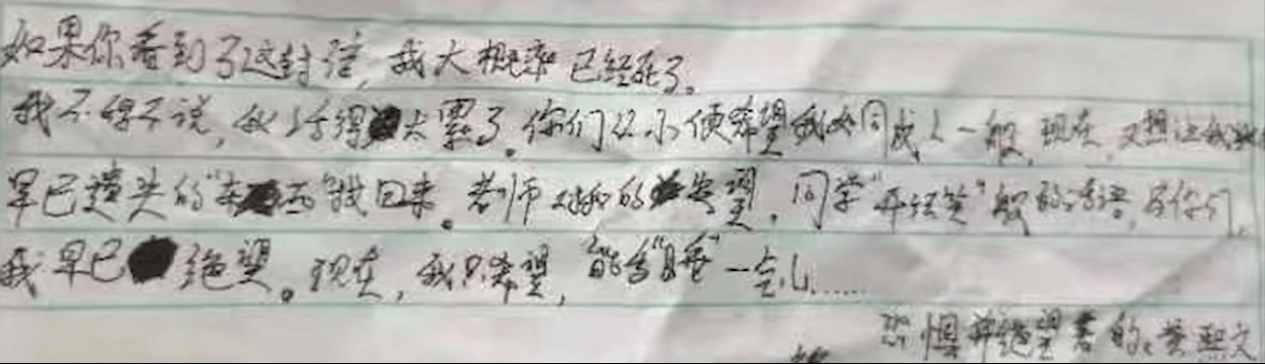 如果你看到了这封信,我大概率已经死了。
我不得不说,我活得太累了。你们从小便希望我如同成人一般,现在,又想让我
早已遗失的“东西”找回来。老师对我的失望,同学“开玩笑”般的话语,与你们,
我早已绝望。现在,我只希望,能多“睡”一会儿……
恐惧并绝望着的